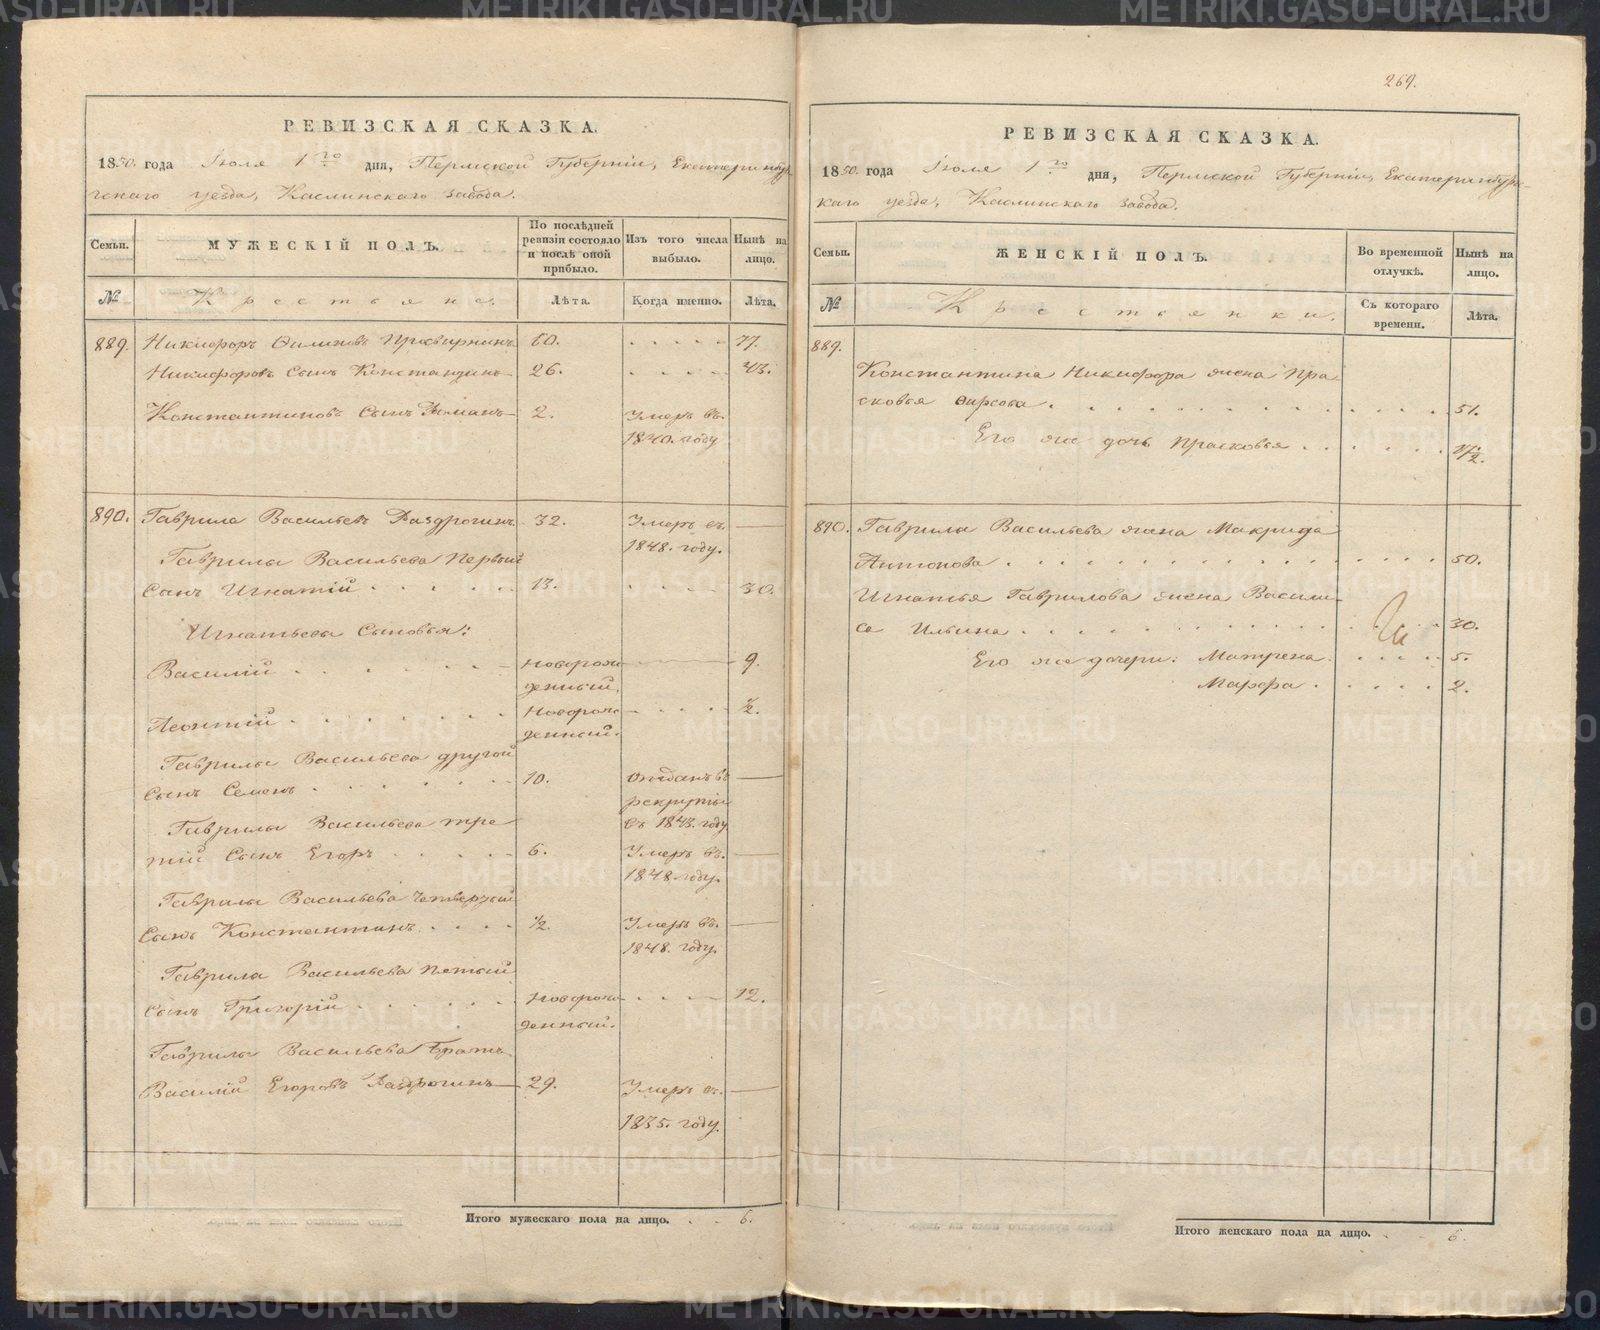 269.
РЕВИЗСКАЯ СКАЗКА.
1850. года Іюля 1го дня, Пермской Губерніи, Екатеринбур-
гскаго уезда, Каслинскаго завода.
Семьи.
МУЖЕСКІЙ ПОЛЪ.
По послѣдней ревизіи состояло и послѣ оной прибыло.
Изъ того числа выбыло.
Нынѣ на лицо.
№
Крестьяне.
Лѣта.
Когда именно.
Лѣта.
889. Никифоръ Филиповъ Просвирнинъ 60. . . . . . 77.
Никифоровъ Сынъ Константинъ 26. . . . . . 43.
Константиновъ Сынъ Романъ 2. Умеръ въ
1840. году
890. Гаврила Васильевъ Раздрогинъ 32. Умеръ въ —
1848. году.
Гаврилы Васильева Первый
Сынъ Игнатій . . . . . . 13. . . . . 30.
Игнатьевы Сыновья:
Василій . . . . . . Новорож- — 9.
денный.
Леонтій . . . . . . . Новорож- . . . . ½.
денный.
Гаврилы Васильева другой
Сынъ Семенъ . . . . . . 10. отданъ въ —
рекруты
въ 1843. году
Гаврилы Васильева тре
тій Сынъ Егоръ . . . . 6. Умеръ въ —
1848 году.
Гаврилы Васильева четвертый
Сынъ Константинъ . . . . ½. Умеръ въ —
1848. году.
Гаврила Васильева пятый
Сынъ Григорій . . . . . . Новорож- . . . . 12.
денный.
Гаврилы Васильева Братъ
Василій Егоровъ Раздрогинъ 29. Умеръ въ —
1835. году.
Итого мужескаго пола на лицо. . . 6.
РЕВИЗСКАЯ СКАЗКА.
1850. года Іюля 1го дня, Пермской Губерніи, Екатеринбург-
скаго уезда, Каслинскаго завода.
Семьи.
ЖЕНСКІЙ ПОЛЪ.
Во временной отлучкѣ.
Нынѣ на лицо.
№
Крестьянки.
Съ котораго времени.
Лѣта.
889.
Константина Никифора жена Пра-
сковья Фирсова . . . . . . . . . . . 51.
Его же дочь Прасковья . . . . . . 17½.
890. Гаврилы Васильева жена Макрида
Антонова . . . . . . . . . . . . 50.
Игнатья Гаврилова жена Васили-
са Ильина . . . . . . . . . . . . 30.
Его же дочери: Матрена . . . . . 5.
Марфа . . . . . . 2.
Итого женскаго пола на лицо. . . 6.
METRIKI.GASO-URAL.RU